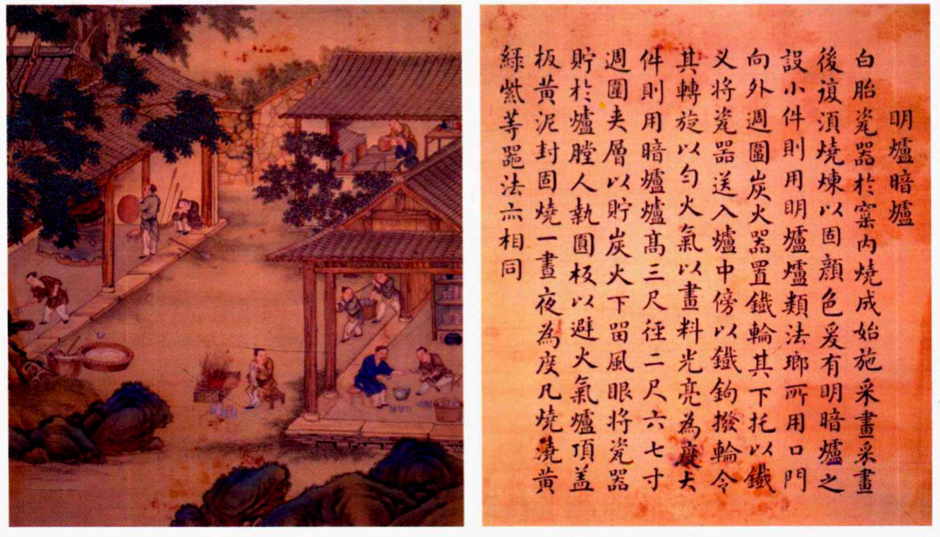 明爐暗爐
白胎瓷器於窯內燒成始施采畫采畫
後復湏燒煉以固顏色爰有明暗爐之
設小件則用明爐爐類法瑯所用口門
向外週圍炭火器置鐵輪其下托以鐵
义將瓷器送入爐中傍以鐵鉤撥輪令
其轉旋以勻火氣以畫料光亮為度大
件則用暗爐爐髙三尺徑二尺六七寸
週圍夹層以貯炭火下留風眼將瓷器
貯於爐膛人執圓板以避火氣爐頂盖
板黃泥封固燒一晝夜為度凡燒澆黃
綠紫等器法亦相同